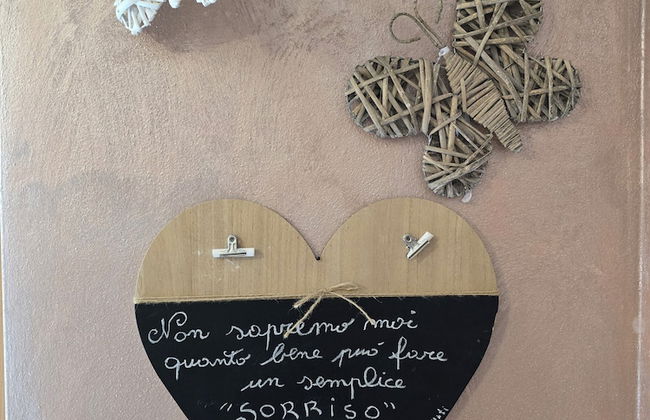 Non sapremo mai
quanto bene può fare
un semplice
"SORRISO"